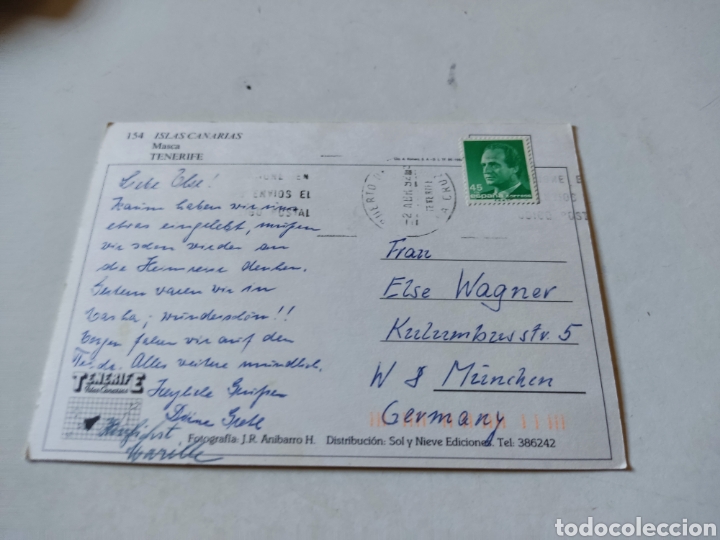 154 ISLAS CANARIAS
Masca
TENERIFE
Liebe Else!
Kaum haben wir uns
etwas eingelebt, müssen
wir schon wieder an
die Heimreise denken.
Gestern waren wir in
Masca; wunderschön!!
Morgen fahren wir auf den
Teide. Alles weitere mündlich.
Herzliche Grüßen
Deine
Herzlichst
TENERIFE
Islas Canarias
ENVIOS EL
POSTAL
PUERTO D
LA CRUZ
45
ESPAÑA
Frau
Else Wagner
Kulumbusstr. 5
W 8 München
Germany
Fotografía: J.R. Anibarro H. Distribución: Sol y Nieve Ediciones. Tel: 386242
todocoleccion